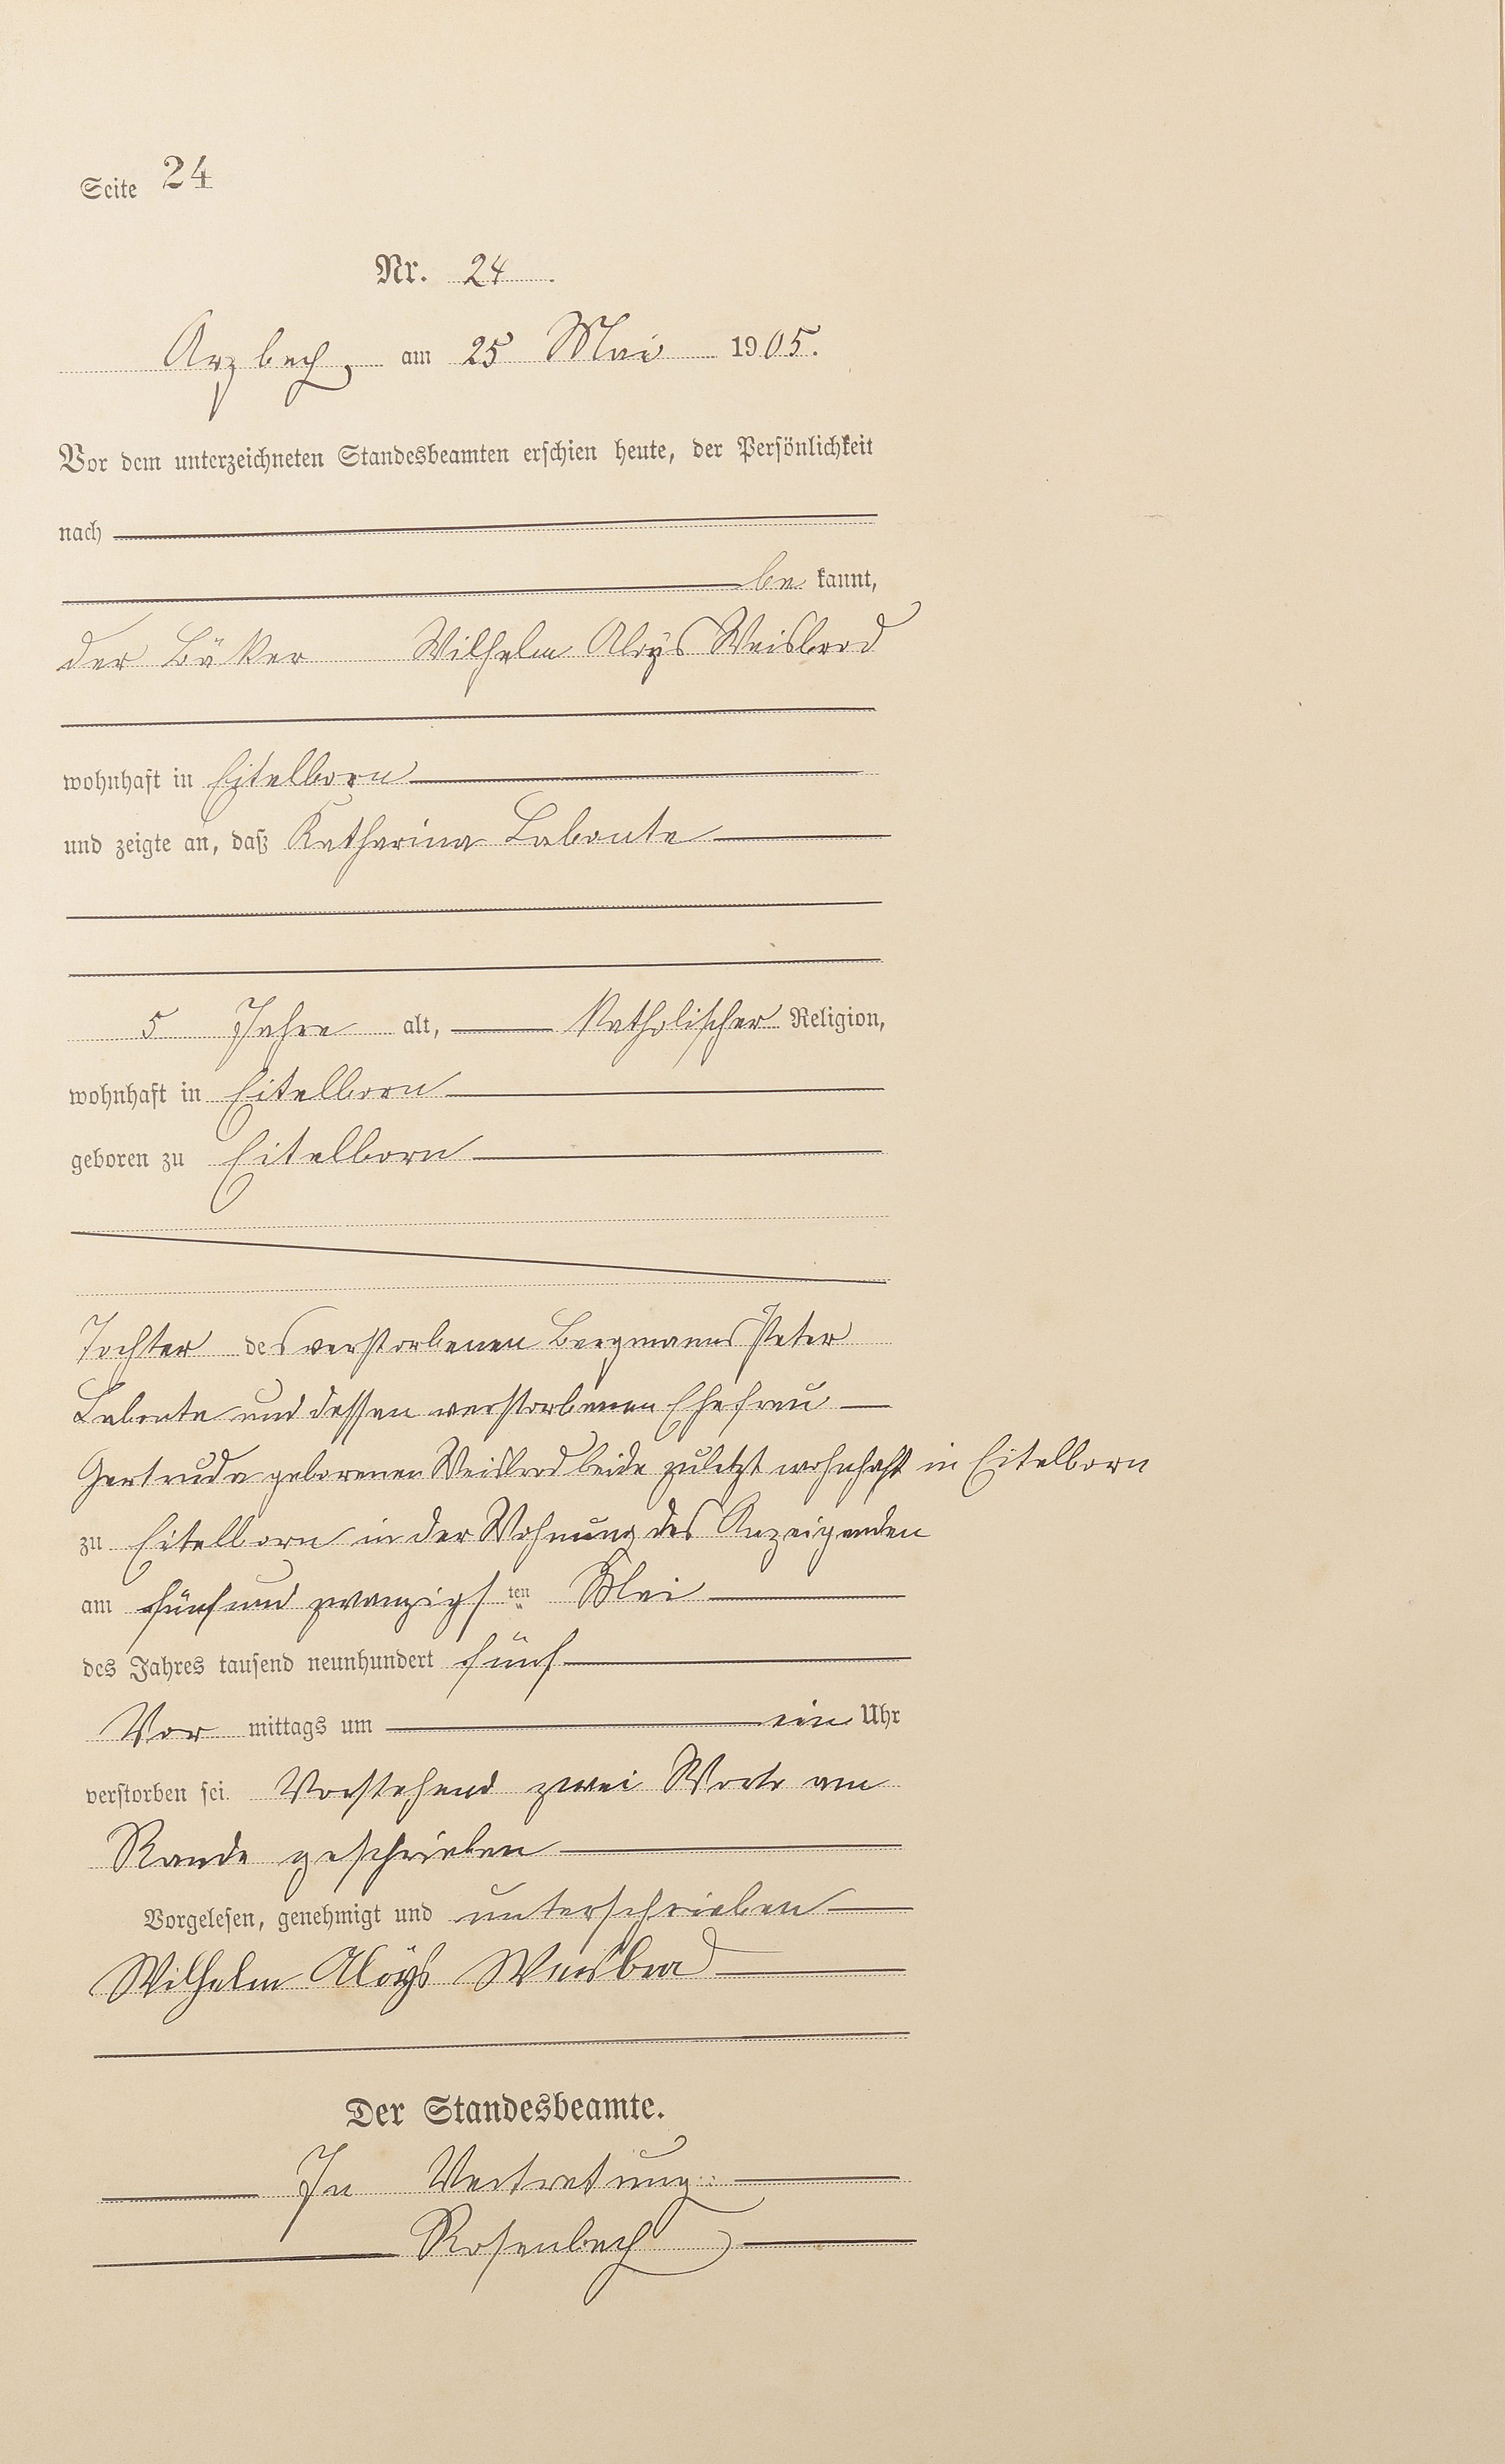 Seite 24
Nr. 24
Arzbach, am 25 Mai 1905.
Vor dem unterzeichneten Standesbeamten erschien heute, der Persönlichkeit
nach
be kannt,
der Bäker Wilhelm Aloys Weisbrod
wohnhaft in Eitelborn
und zeigte an, daß Katharina Labonte
5 Jahre alt, katholischer Religion,
wohnhaft in Eitelborn
geboren zu Eitelborn
Tochter des verstorbenen Bergmanns Peter
Labonte und dessen verstorbenen Ehefrau
Gertruda geborenen Weisbrod beide zuletzt wohnhaft in Eitelborn
zu Eitelborn in der Wohnung des Anzeigenden
am fünfundzwanzigsten Mai
des Jahres tausend neunhundert fünf
Vor mittags um ein Uhr
verstorben sei. Vorstehend zwei Worte am
Rande geschrieben
Vorgelesen, genehmigt und unterschrieben
Wilhelm Aloÿs Weisbrod
Der Standesbeamte.
In Vertretung:
Rosenbach